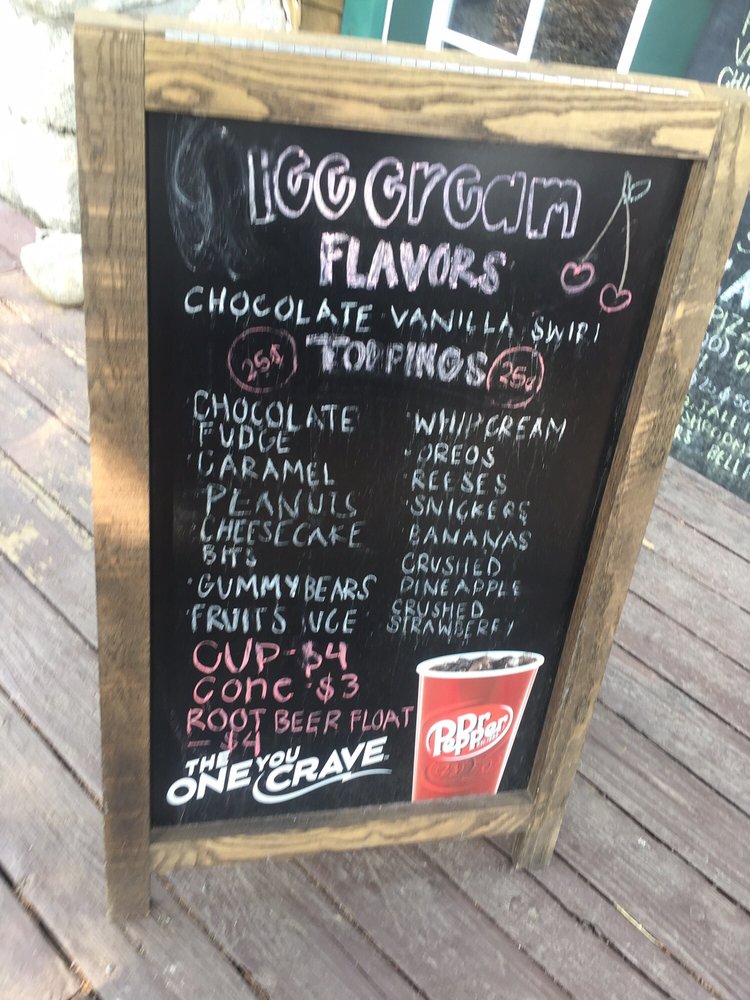 ICE CREAM
FLAVORS
CHOCOLATE VANILLA SWIRl
25¢ TOPPINGS 25¢
CHOCOLATE
FUDGE
CARAMEL
PEANUTS
CHEESECAKE
BITS
GUMMY BEARS
FRUIT S UCE
WHIP CREAM
OREOS
REESES
SNICKERS
BANANAS
CRUSHED
PINEAPPLE
CRUSHED
STRAWBERRY
CUP - $4
Cone - $3
ROOT BEER FLOAT
- $4
THE
ONE YOU
CRAVE
Dr Pepper